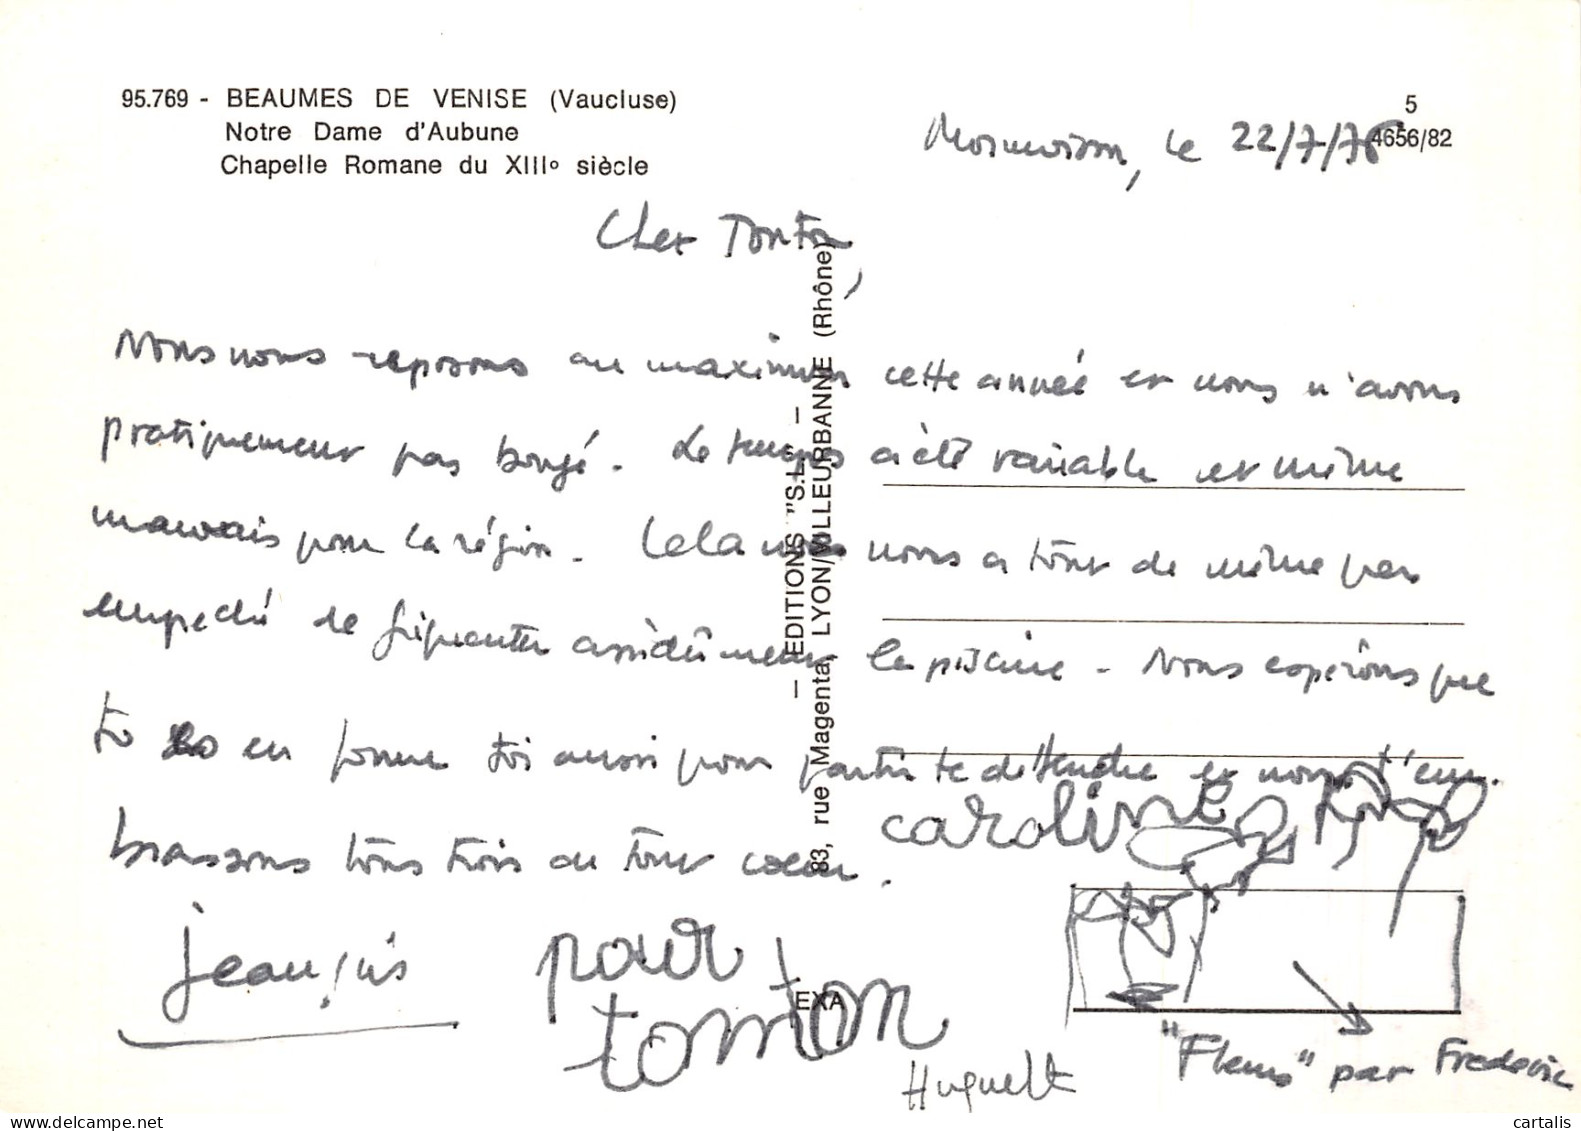 95.769 - BEAUMES DE VENISE (Vaucluse)
Notre Dame d'Aubune
Chapelle Romane du XIIIº siècle
5
4656/82
Mormoiron, le 22/7/76
Cher Tonton,
Nous nous reposons au maximum cette année et nous n'avons
pratiquement pas bougé. Le temps a été variable et même
mauvais pour la région. Cela nous a tout de même pas
empêché de fréquenter assidûment la piscine. Nous espérons que
tu en forme toi aussi pour partir te détendre et nous t'em-
brassons tous trois de tout coeur.
caroline
jeanfis
pour
tonton
Huguette
"Fleurs" par Frederic
— EDITIONS "S.L." —
83, rue Magenta, LYON/VILLEURBANNE (Rhône)
EXA
delcampe.net
cartalis